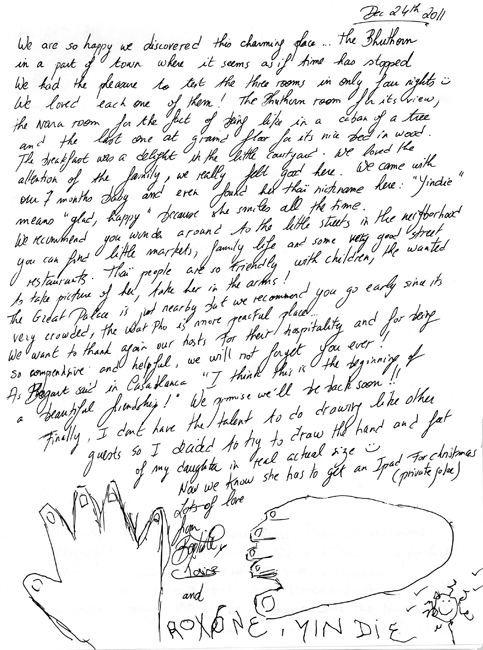 Dec 24th 2011
We are so happy we discovered this charming place... the Bhuthorn
in a part of town where it seems as if time has stopped
We had the pleasure to test the three rooms in only four nights
We loved each one of them! The Bhuthorn room for its view,
the Nara room for the fact of being like in a caban of a tree
and the last one at ground floor for its nice bed in wood.
The breakfast was a delight in the little courtyard. We loved the
attention of the family, we really felt good here. We came with
our 7 months baby and even found her thaï nickname here: "Yindie"
means "glad, happy" because she smiles all the time.
We recommend you wander around to the little streets in the neighborhood
you can find little markets, family life and some very good street
restaurants. Thaï people are so friendly with children, the wanted
to take picture of her, take her in the arms!
The Great Palace is just nearby but we recommend you go early since its
very crowded, the Wat Pho is more peaceful place...
We want to thank again our hosts for their hospitality and for being
so comprehensive and helpful, we will not forget you ever!
As Bogart said in Casablanca "I think this is the beginning of
a beautiful friendship!" We promise we'll be back soon!!
Finally, I don't have the talent to do drawing like other
guests so I decided to try to draw the hand and feet
of my daughter in real actual size
Now we know she has to get an Ipad for christmas
(private joke)
Lots of love
from
and
ROXANE, YINDIE